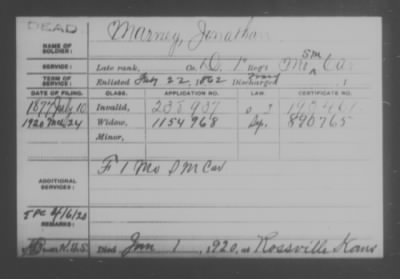 DEAD
NAME OF SOLDIER: Marney, Jonathan
SERVICE: Late rank, Co. D, 1" Reg't Mo S M Cav
TERM OF SERVICE: Enlisted July 22, 1862 Discharged
DATE OF FILING. CLASS. APPLICATION NO. LAW. CERTIFICATE NO.
1877 July 10 Invalid,
1920 Mch 24 Widow, 1154968 890765
Minor,
ADDITIONAL SERVICES: F 1 Mo S M Cav
REMARKS: 4/6/20
Died Jan 1, 1920, at Rossville Kans